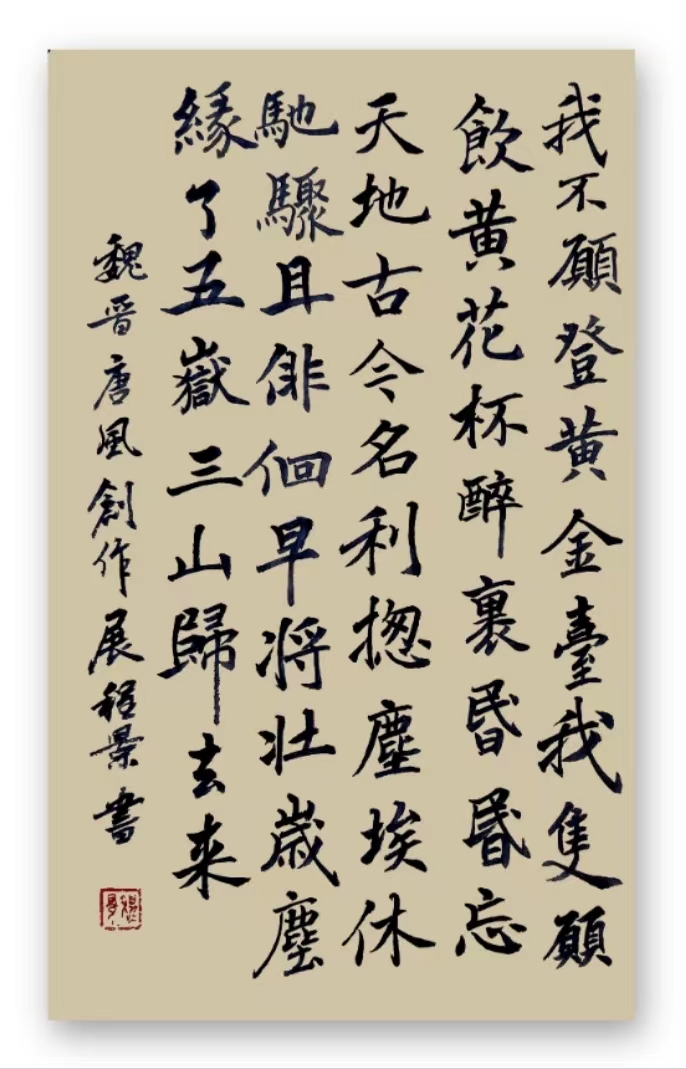 我不願登黃金臺我隻願
飲黃花杯醉裏昏昬忘
天地古今名利揔塵埃休
馳驟且徘徊早將壯歲塵
緣了五嶽三山歸去来
魏晉唐風創作展程景書